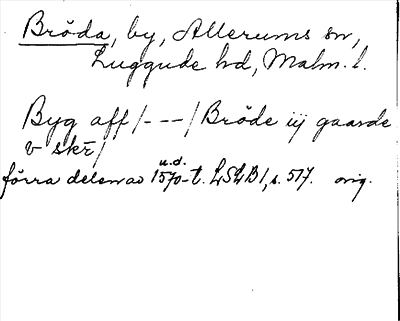 Bröda, by, Allerums sn,
Luggude hd, Malm. l.
Byg aff /- - -/ Bröde iij gaarde
v skr̄/
u.d.
förra delen av 1570-t. LSLB 1, s. 517. orig.